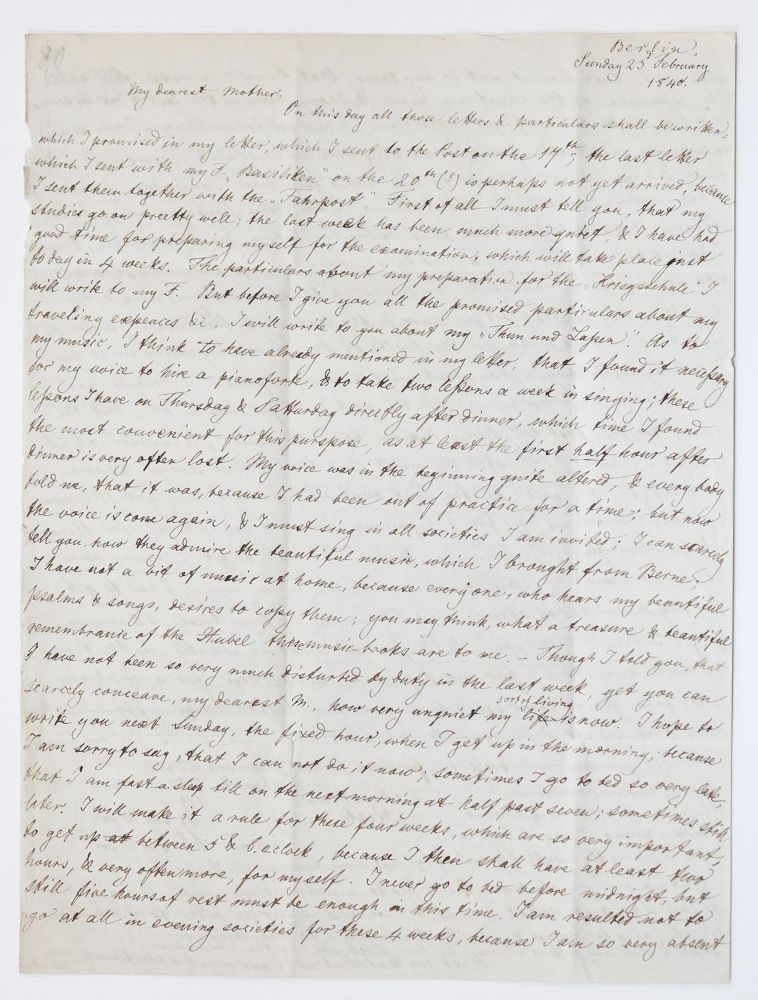 Berlin.
Sunday 23d February
1840.
My dearest Mother.
On this day all those letters & particulars shall be written,
which I promised in my letter, which I sent to the Post on the 17th; the last letter
which I sent with my F. „Basiliken" on the 20th (?) is perhaps not yet arrived, because
I sent them together with the „Fahrpost". First of all I must tell you, that my
studies go on preetty well; the last week has been much more quiet, & I have had
good time for preparing myself for the examination, which will take place just
to day in 4 weeks. The particulars about my preparation for the „Kriegsschule" I
will write to my F. But before I give you all the promised particulars about my
traveling expences &c, I will write to you about my „Thun und Lassen". As to
my music, I think to have already mentioned in my letter, that I found it necessary
for my voice to hire a pianoforte, & to take two lessons a week in singing; these
lessons I have on Thursday & Satturday directly after dinner, which time I found
the most convenient for this purspose, as at least the first half hour after
dinner is very often lost. My voice was in the beginning quite altered, & every body
told me, that it was, because I had been out of practice for a time; but now
the voice is come again, & I must sing in all societies I am invited; I can scarcely
tell you how they admire the beautiful music, which I brought from Berne.
I have not a bit of music at home, because everyone, who hears my beautiful
psalms & songs, desires to copy them; you may think, what a treasure & beautiful
remembrance of the Stubel these music-books are to me. – Though I told you, that
I have not been so very much disturbed by duty in the last week, yet you can
scarcely conceave, my dearest M., how very unquiet my sort of living life is now. I hope to
write you next Sunday, the fixed hour, when I get up in the morning, because
I am sorry to say, that I can not do it now; sometimes I go to bed so very late,
that I am fast asleep till on the next morning at half past seven; sometimes still
later. I will make it a rule for these four weeks, which are so very important,
to get up at between 5 & 6 oclock, because I then shall have at least two
hours, & very often more, for myself. I never go to bed before midnight, but
still five hours of rest must be enough in this time. I am resulted not to
go at all in evening societies for these 4 weeks, because I am so very absent